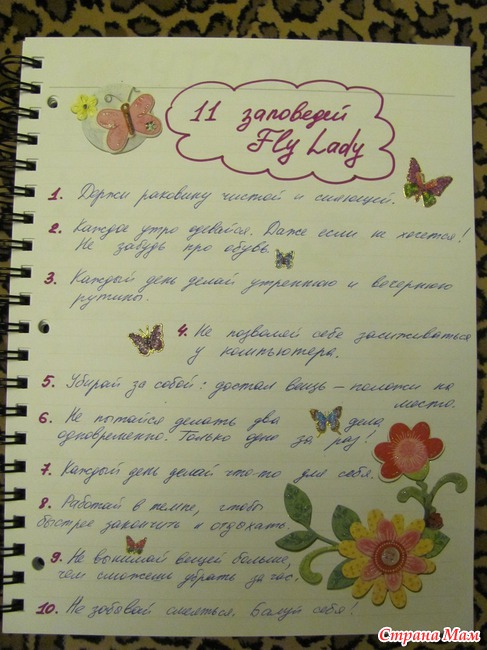 11 заповедей
Fly Lady
1. Держи раковину чистой и сияющей.
2. Каждое утро одевайся. Даже если не хочется!
Не забудь про обувь
3. Каждый день делай утреннюю и вечернюю
рутины.
4. Не позволяй себе засиживаться
у компьютера.
5. Убирай за собой: достал вещь – положи на
место.
6. Не пытайся делать два дела
одновременно. Только одно за раз!
7. Каждый день делай что-то для себя.
8. Работай в темпе, чтобы
быстрее закончить и отдыхать.
9. Не вынимай вещей больше,
чем сможешь убрать за час.
10. Не забывай смеяться. Балуй себя!
Страна Мам